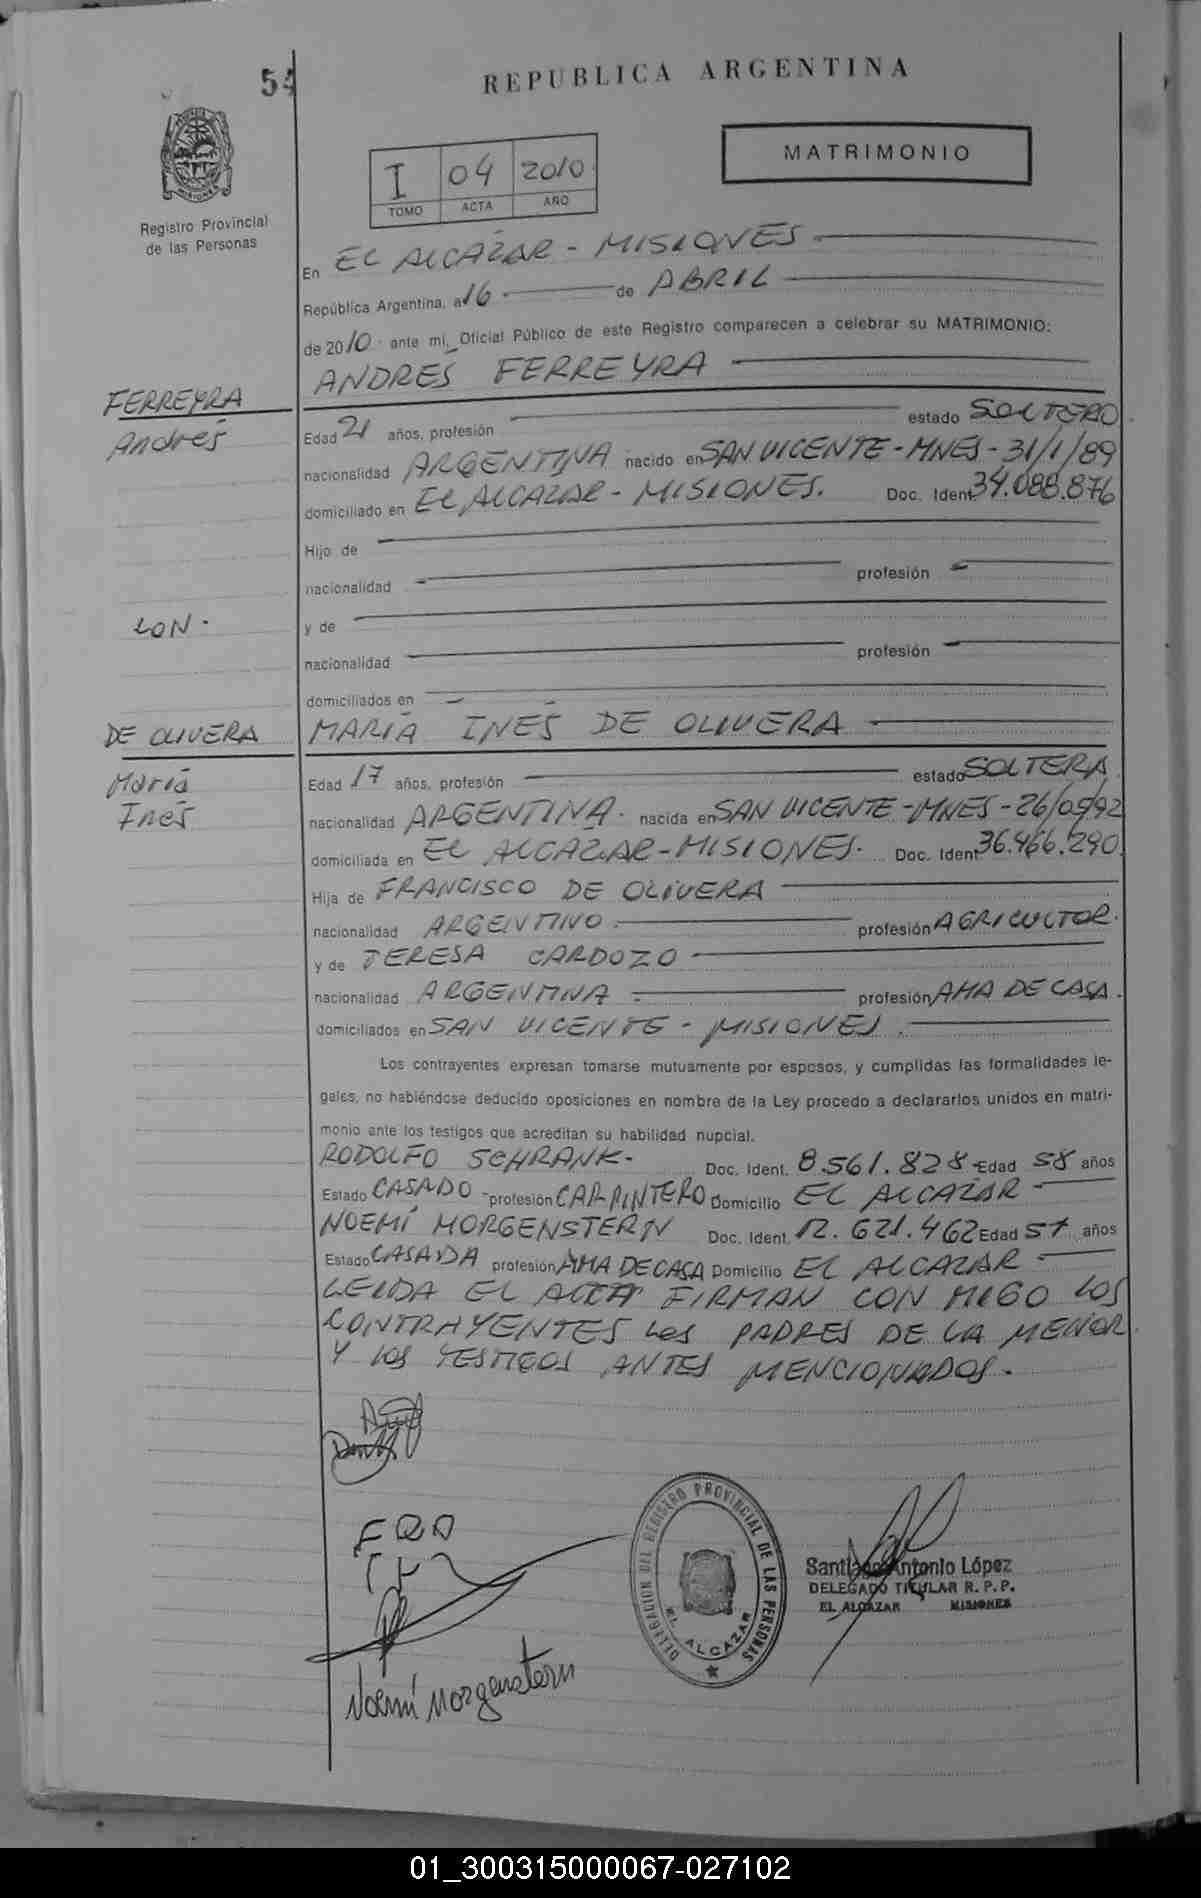 54
REPUBLICA ARGENTINA
MISIONES
Registro Provincial
de las Personas
I 04 2010
TOMO ACTA AÑO
MATRIMONIO
En EL ALCAZAR - MISIONES
República Argentina, a 16 de ABRIL
de 2010 ante mí, Oficial Público de este Registro comparecen a celebrar su MATRIMONIO:
FERREYRA
Andrés
ANDRÉS FERREYRA
Edad 21 años, profesión estado SOLTERO
nacionalidad ARGENTINA nacido en SAN VICENTE - MNES - 31/1/89
domiciliado en EL ALCAZAR - MISIONES. Doc. Ident. 34.088.876
Hijo de
nacionalidad profesión
LON.
y de
nacionalidad profesión
domiciliados en
DE OLIVERA
María
Inés
MARÍA INÉS DE OLIVERA
Edad 17 años, profesión estado SOLTERA
nacionalidad ARGENTINA. nacida en SAN VICENTE - MNES - 26/05/92
domiciliada en EL ALCÁZAR - MISIONES. Doc. Ident. 36.466.290
Hija de FRANCISCO DE OLIVERA
nacionalidad ARGENTINO profesión AGRICULTOR.
y de TERESA CARDOZO
nacionalidad ARGENTINA profesión AMA DE CASA.
domiciliados en SAN VICENTE - MISIONES.
Los contrayentes expresan tomarse mutuamente por esposos, y cumplidas las formalidades le-
gales, no habiéndose deducido oposiciones en nombre de la Ley procedo a declararlos unidos en matri-
monio ante los testigos que acreditan su habilidad nupcial.
RODOLFO SCHRANK - Doc. Ident. 8.561.828 Edad 58 años
Estado CASADO profesión CARPINTERO Domicilio EL ALCAZAR
NOEMÍ MORGENSTERN Doc. Ident. 12.621.462 Edad 57 años
Estado CASADA profesión AMA DE CASA Domicilio EL ALCAZAR
LEIDA EL ACTA FIRMAN CON MIGO LOS
CONTRAYENTES LOS PADRES DE LA MENOR
Y LOS TESTIGOS ANTES MENCIONADOS.
Noemí Morgenstern
DELEGACION DEL REGISTRO PROVINCIAL DE LAS PERSONAS
EL ALCAZAR
Santiago Antonio López
DELEGADO TITULAR R. P. P.
EL ALCAZAR MISIONES
01_300315000067-027102